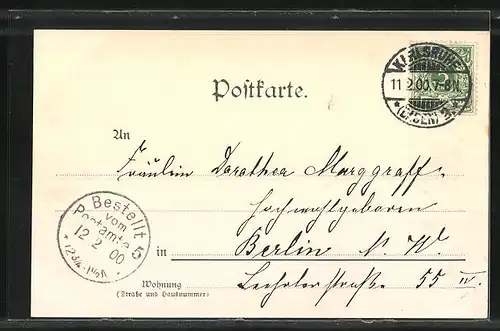 Postkarte.
KARLSRUHE
11.2.00.7-8N.
* (BADEN) 2. *
An
Fräulein Dorothea Marggraff
Hochwohlgeboren
in Berlin N. W.
Wohnung
(Straße und Hausnummer)
Lehrterstraße 55 IV.
Bestellt
vom
Postamte 5
12 2 00